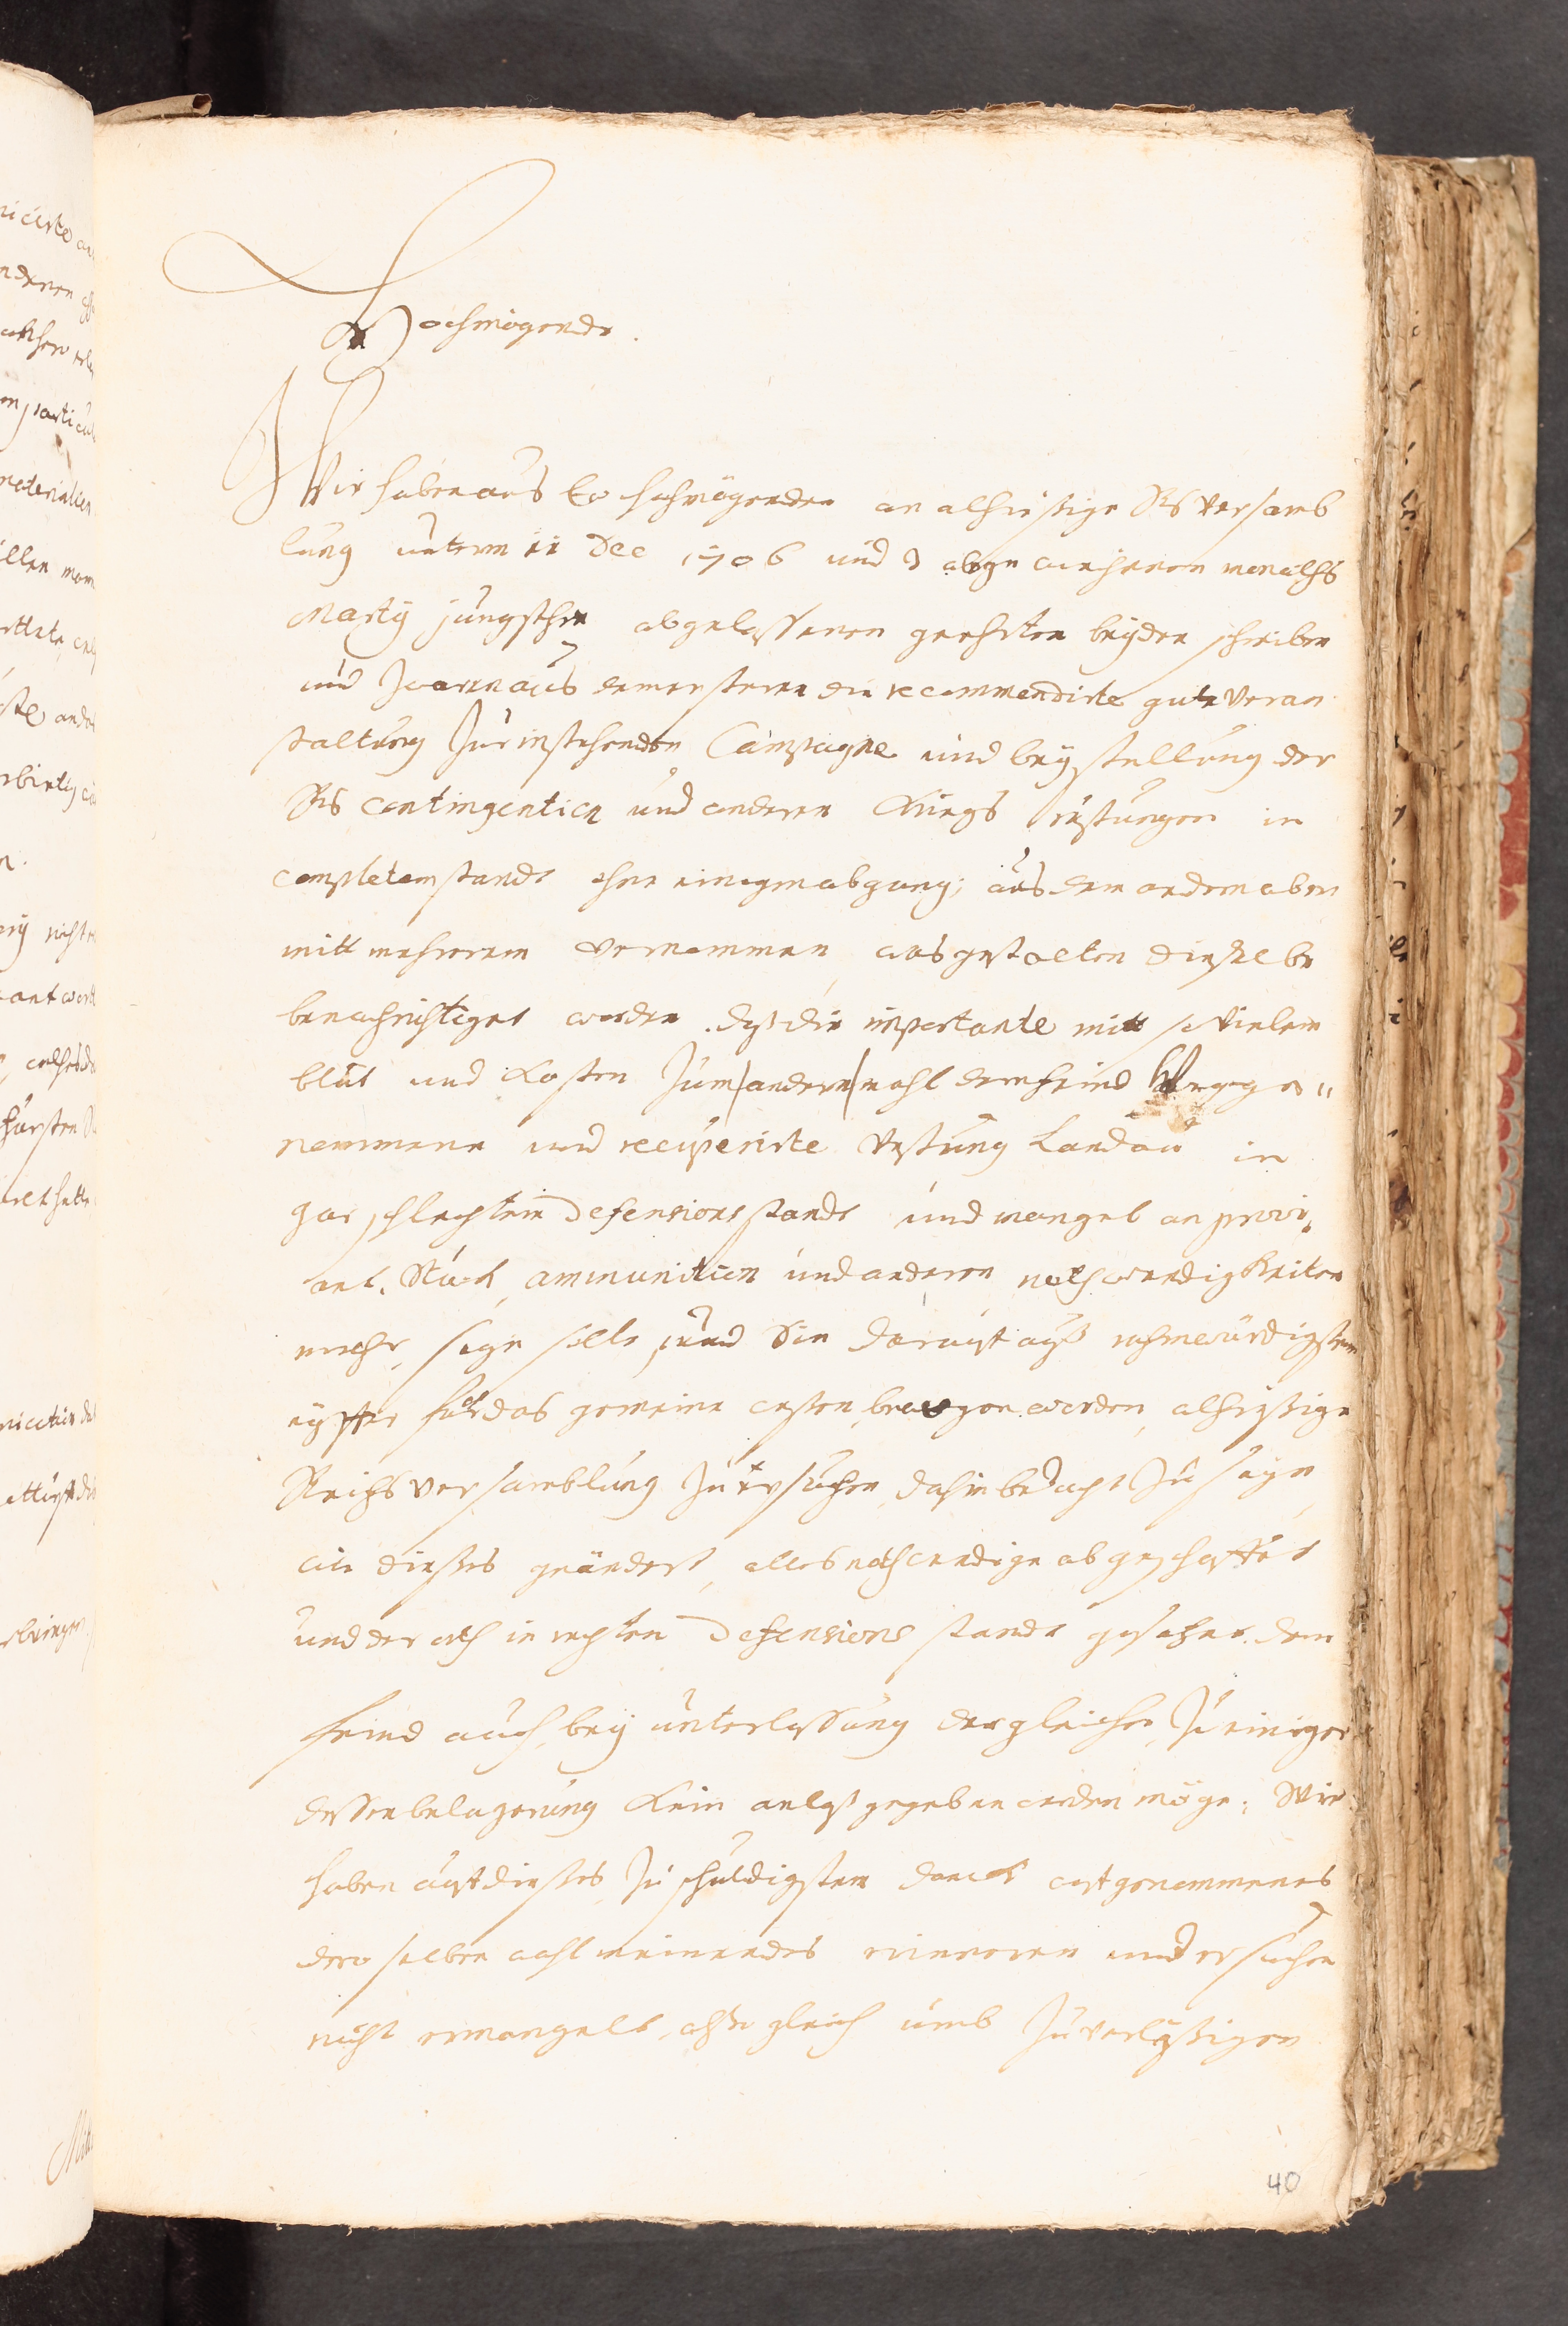 Hochmögende.
Wir haben aus Ew hochmögenden an alhießige Rhs versamb
lung unterm 11 Dec 1706 und 3 abgewichenen monaths
Marty jüngsthin abgelassenen geehrten beyden schreiben
und zwaren aus dem ersteren die recommendirte gute veran
staltung zur instehenden Campagne und beystellung der
Rhs contingentien und anderen Kriegs rüstungen in
completem stande ohne einigen abgang; aus dem andern aber
mitt mehrerem vernommen was gestalten dieselbe
benachrichtiget worden, daß die importante mitt so vielem
blut und Kosten zum andern mahl dem feind
nommene und recuperirte Vestung Landau in
gar schlechtem Defensions stande und mangel an provi,
ant, Stück, ammunition und anderen nothwendigkeiten
mehr, seye solle, und Sie darauf auß rühmwürdigstem
eyffer für das gemeine wesen bewogen worden, alhießige
Reichs versamblung zu ersuchen, dahin bedacht zu seyn
wie dießes geändert, alles nothwendige abgeschaffet
und der orth in rechten Defensions stande gesetzet, dem
feind auch, bey unterlassung dergleichen, zu einiger
dessen belagerung Kein anlaß gegeben werden möge; Wie
haben auf dießes zu schuldigstem danck aufgenommenes
deroselben wohlmeinendes erinneren und ersuchen
nicht ermangelt, also gleich umb zuverläßigen
40